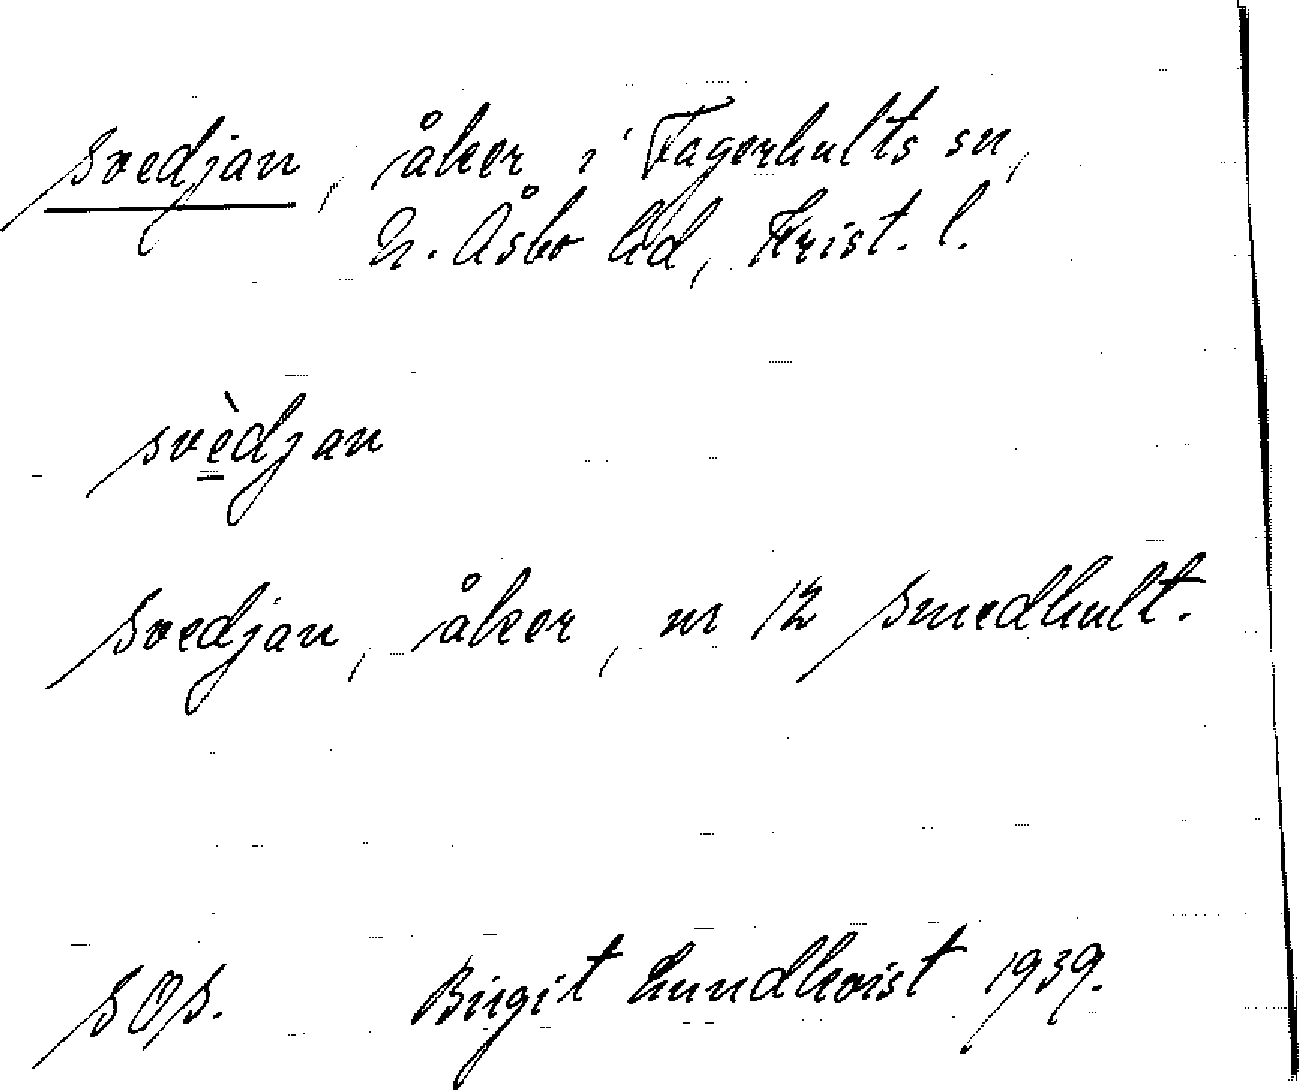 Svedjan, åker i Fagerhults sn,
N. Åsbo hd, Krist. l.
svèdjan
Svedjan, åker, nr 12 Smedhult.
SOS. Birgit Lundkvist 1939.